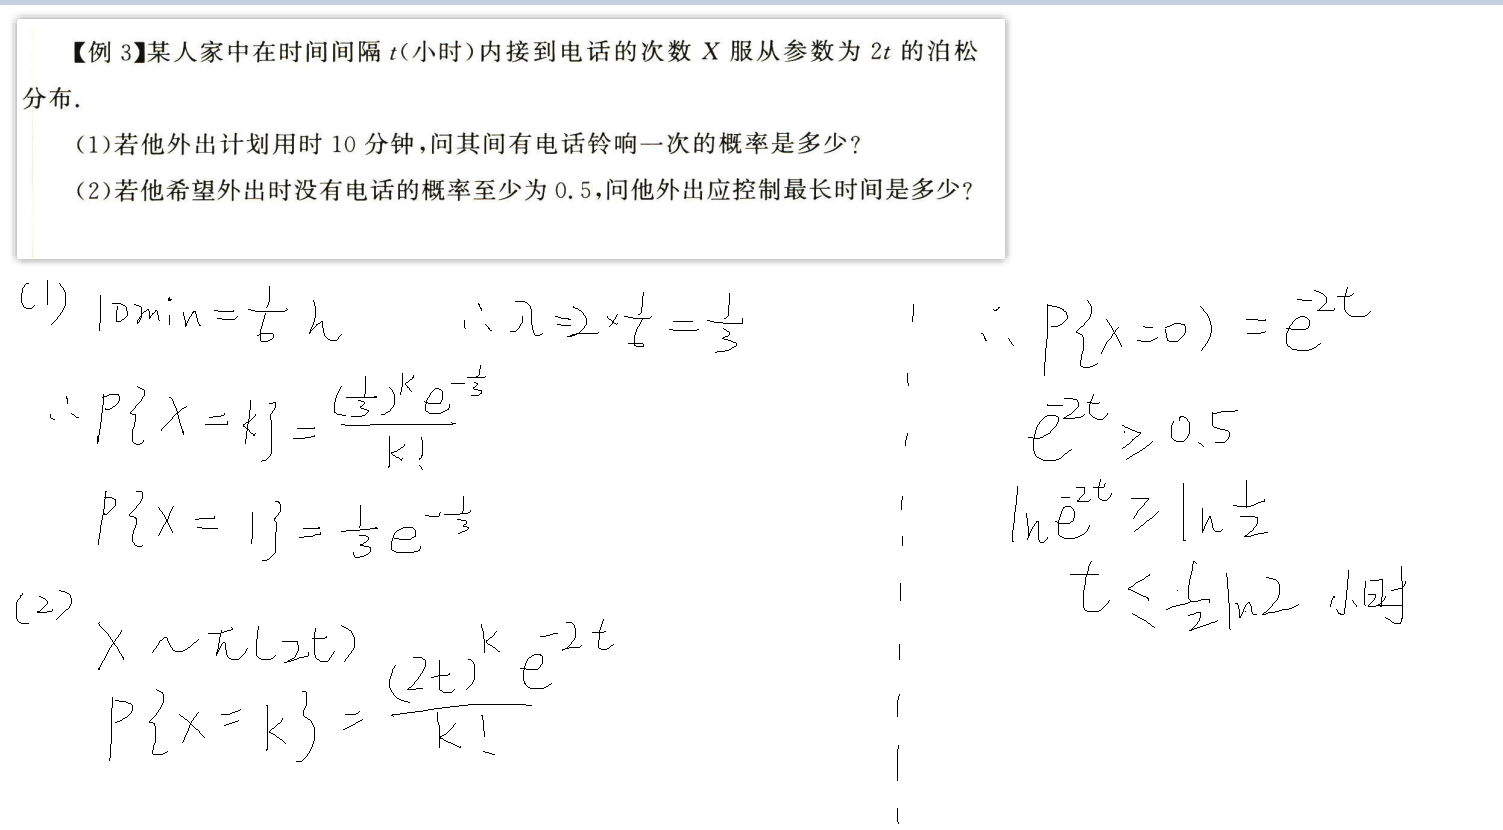 【例 3】某人家中在时间间隔 t(小时)内接到电话的次数 X 服从参数为 2t 的泊松
分布.
(1)若他外出计划用时 10 分钟,问其间有电话铃响一次的概率是多少?
(2)若他希望外出时没有电话的概率至少为 0.5,问他外出应控制最长时间是多少?
(1) 10min = 1/6 h ∴ λ = 2 × 1/6 = 1/3
∴ P{X = k} = (1/3)^k e^{-1/3} / k!
P{X = 1} = 1/3 e^{-1/3}
(2)
X ~ π(2t)
P{X = k} = (2t)^k e^{-2t} / k!
∴ P{X = 0) = e^{-2t}
e^{-2t} ≥ 0.5
ln e^{-2t} ≥ ln 1/2
t ≤ 1/2 ln2 小时